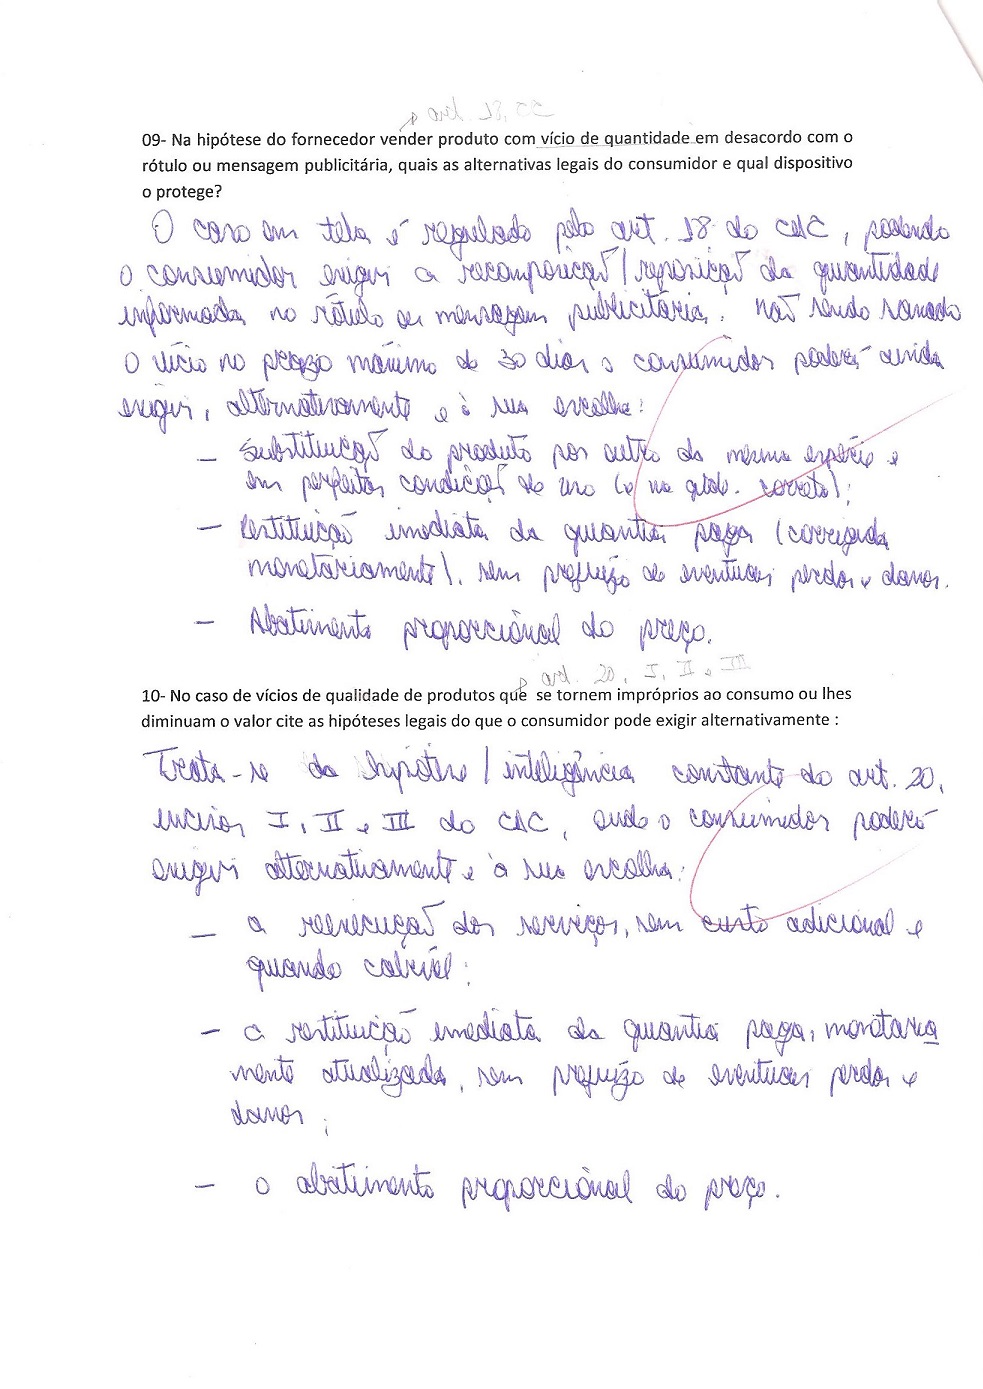 09- Na hipótese do fornecedor vender produto com vício de quantidade em desacordo com o
rótulo ou mensagem publicitária, quais as alternativas legais do consumidor e qual dispositivo
o protege?
O caso em tela é regulado pelo art. 18 do CDC, podendo
o consumidor exigir a recomposição/reposição da quantidade
informada no rótulo ou mensagem publicitária. Não sendo sanado
o vício no prazo máximo de 30 dias o consumidor poderá ainda
exigir, alternativamente e à sua escolha:
– Substituição do produto por outro da mesma espécie e
em perfeitas condições de uso (e na qtde. correta);
– Restituição imediata da quantia paga (corrigida
monetariamente), sem prejuízo de eventuais perdas e danos.
– Abatimento proporcional do preço.
art. 20, I, II e III
10- No caso de vícios de qualidade de produtos que se tornem impróprios ao consumo ou lhes
diminuam o valor cite as hipóteses legais do que o consumidor pode exigir alternativamente :
Trata-se da hipótese/inteligência constante do art. 20,
incisos I, II e III do CDC, onde o consumidor poderá
exigir alternativamente e à sua escolha:
– a reexecução dos serviços, sem custo adicional e
quando cabível;
– a restituição imediata da quantia paga, monetaria
mente atualizada, sem prejuízo de eventuais perdas e
danos;
– o abatimento proporcional do preço.